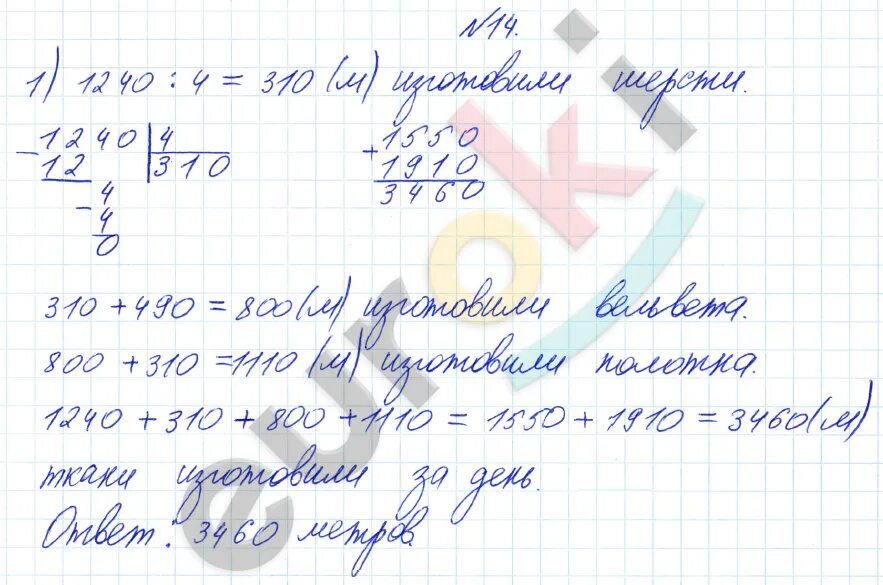 №14.
1) 1240 : 4 = 310 (м) изготовили шерсти.
1240 | 4
− 12 | 310
4
− 4
0
1550
+ 1910
3460
310 + 490 = 800 (м) изготовили вельвета.
800 + 310 = 1110 (м) изготовили полотна.
1240 + 310 + 800 + 1110 = 1550 + 1910 = 3460 (м)
ткани изготовили за день.
Ответ: 3460 метров.
euroki